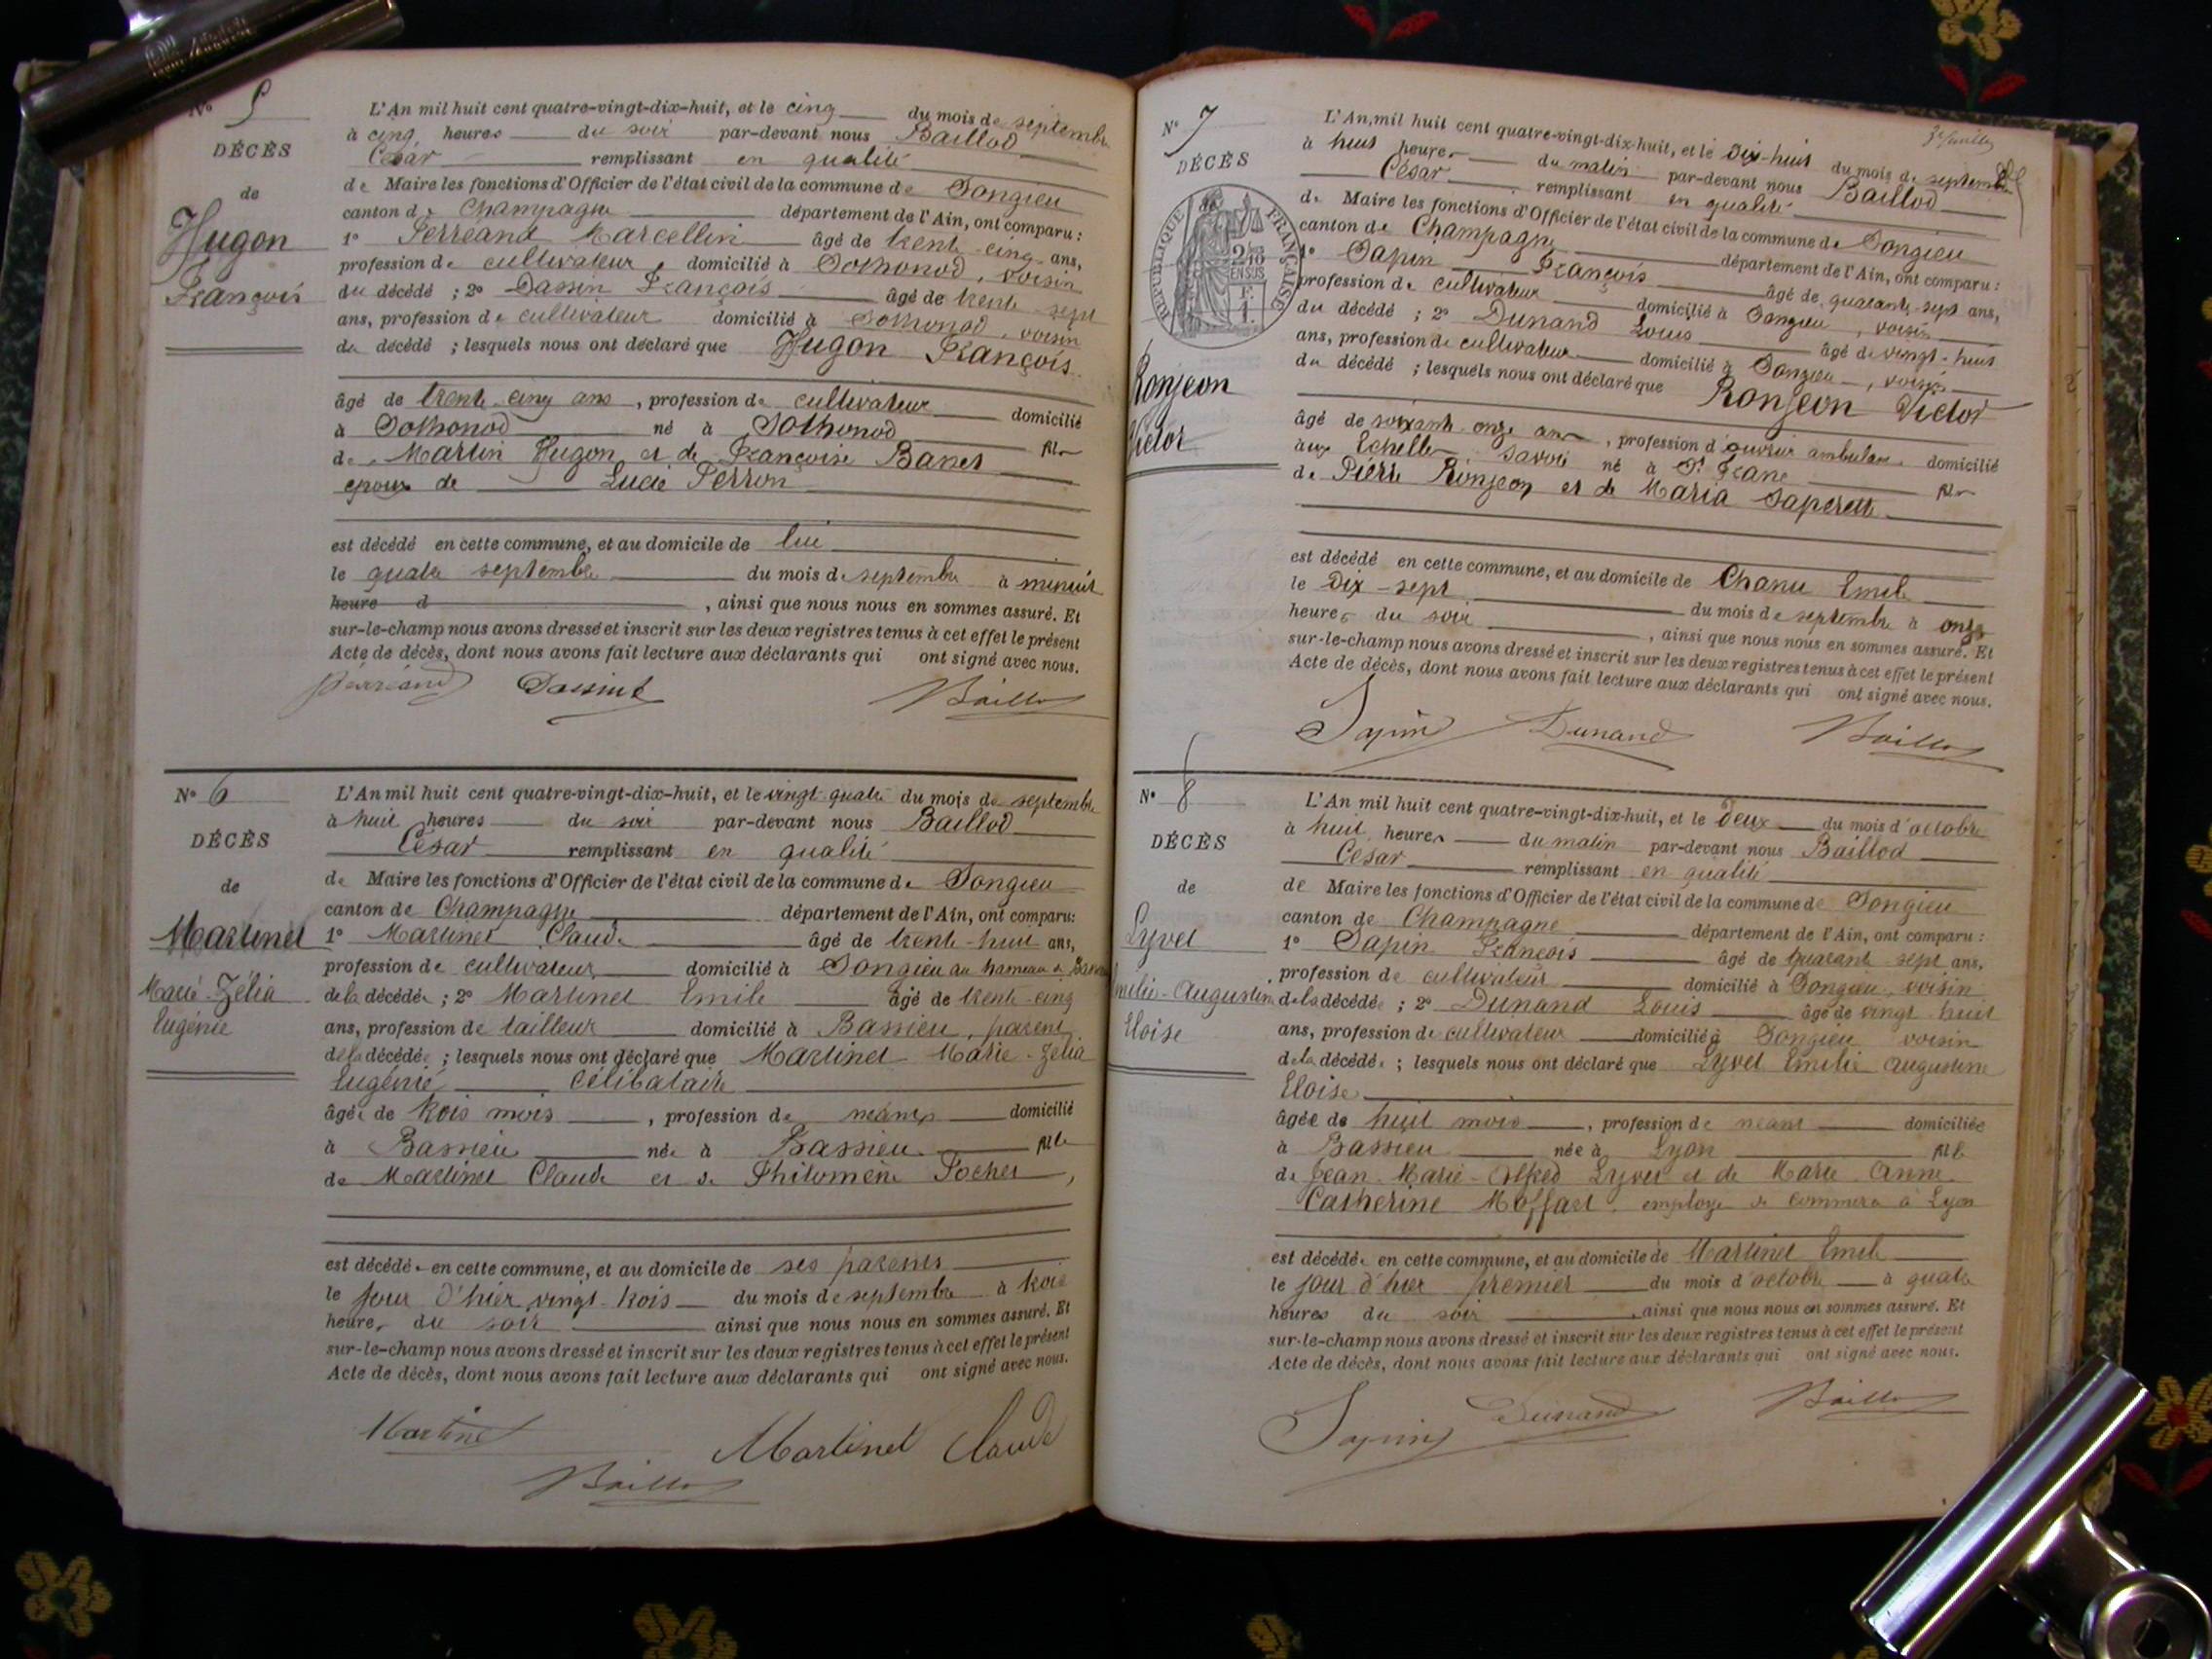 N° 5
DÉCÈS
de
Hugon
François
L'An mil huit cent quatre-vingt-dix-huit, et le cinq du mois de septembre
à cinq heures du soir par-devant nous Baillod
César remplissant en qualité
de Maire les fonctions d'Officier de l'état civil de la commune de Songieu
canton de Champagne département de l'Ain, ont comparu :
1° Perreand Marcellin âgé de trente-cinq ans,
profession de cultivateur, domicilié à Sothonod, voisin
du décédé ; 2° Dassin François âgé de trente-sept
ans, profession de cultivateur domicilié à Sothonod, voisin
du décédé ; lesquels nous ont déclaré que Hugon François
âgé de trente cinq ans, profession de cultivateur domicilié
à Sothonod né à Sothonod fils
de Martin Hugon et de Françoise Banet
époux de Lucie Perron
est décédé en cette commune, et au domicile de lui
le quatre septembre du mois de septembre à minuit
heure d , ainsi que nous nous en sommes assuré. Et
sur-le-champ nous avons dressé et inscrit sur les deux registres tenus à cet effet le présent
Acte de décès, dont nous avons fait lecture aux déclarants qui ont signé avec nous.
Perréand Baillod
N° 6
DÉCÈS
de
Martinet
Marie-Zélia
Eugénie
L'An mil huit cent quatre-vingt-dix-huit, et le vingt quatre du mois de septembre
à huit heures du soir par-devant nous Baillod
César remplissant en qualité
de Maire les fonctions d'Officier de l'état civil de la commune de Songieu
canton de Champagne département de l'Ain, ont comparu :
1° Martinet Claude âgé de trente-huit ans,
profession de cultivateur domicilié à Songieu au hameau de
de la décédée ; 2° Martinet Emile âgé de trente-cinq
ans, profession de tailleur domicilié à Bassieu, parent
de la décédée ; lesquels nous ont déclaré que Martinet Marie-Zélia
Eugénie célibataire
âgée de trois mois, profession de néant domicilié
à Bassieu née à Bassieu fille
de Martinet Claude et de Philomène Pochet,
est décédée en cette commune, et au domicile de ses parents
le jour d'hier vingt-trois du mois de septembre à trois
heures du soir ainsi que nous nous en sommes assuré. Et
sur-le-champ nous avons dressé et inscrit sur les deux registres tenus à cet effet le présent
Acte de décès, dont nous avons fait lecture aux déclarants qui ont signé avec nous.
Martinet Martinet Claude
Baillod
3e feuillet
N° 7
DÉCÈS
RÉPUBLIQUE FRANÇAISE
2/10
EN SUS
F.
1.
Ronjeon
Victor
L'An mil huit cent quatre-vingt-dix-huit, et le dix-huit du mois de septembre
à huit heures du matin par-devant nous Baillod
César remplissant en qualité
de Maire les fonctions d'Officier de l'état civil de la commune de Songieu
canton de Champagne département de l'Ain, ont comparu :
1° Sapin François âgé de quarante-sept ans,
profession de cultivateur domicilié à Songieu, voisin
du décédé ; 2° Dunand Louis âgé de vingt-huit
ans, profession de cultivateur domicilié à Songieu, voisin
du décédé ; lesquels nous ont déclaré que Ronjeon Victor
âgé de soixante onze ans, profession d'ouvrier ambulant domicilié
aux Echelles, Savoie né à St Franc fils
de Pierre Ronjeon et de Maria
est décédé en cette commune, et au domicile de Chanu Emile
le dix-sept du mois de septembre à onze
heures du soir, ainsi que nous nous en sommes assuré. Et
sur-le-champ nous avons dressé et inscrit sur les deux registres tenus à cet effet le présent
Acte de décès, dont nous avons fait lecture aux déclarants qui ont signé avec nous.
Sapin Dunand Baillod
N° 8
DÉCÈS
de
Lyvet
Emilie-Augustine
Eloise
L'An mil huit cent quatre-vingt-dix-huit, et le deux du mois d'octobre
à huit heures du matin par-devant nous Baillod
César remplissant en qualité
de Maire les fonctions d'Officier de l'état civil de la commune de Songieu
canton de Champagne département de l'Ain, ont comparu :
1° Sapin François âgé de quarante-sept ans,
profession de cultivateur domicilié à Songieu, voisin
de la décédée ; 2° Dunand Louis âgé de vingt-huit
ans, profession de cultivateur domicilié à Songieu voisin
de la décédée ; lesquels nous ont déclaré que Lyvet Emilie Augustine
Eloise
âgée de huit mois, profession de néant domiciliée
à Bassieu née à Lyon fille
de Jean-Marie-Alfred Lyvet et de Marie Anne
Catherine Moffart employé de commerce à Lyon
est décédée en cette commune, et au domicile de Martinet Emile
le jour d'hier premier du mois d'octobre à quatre
heures du soir, ainsi que nous nous en sommes assuré. Et
sur-le-champ nous avons dressé et inscrit sur les deux registres tenus à cet effet le présent
Acte de décès, dont nous avons fait lecture aux déclarants qui ont signé avec nous.
Sapin Dunand Baillod